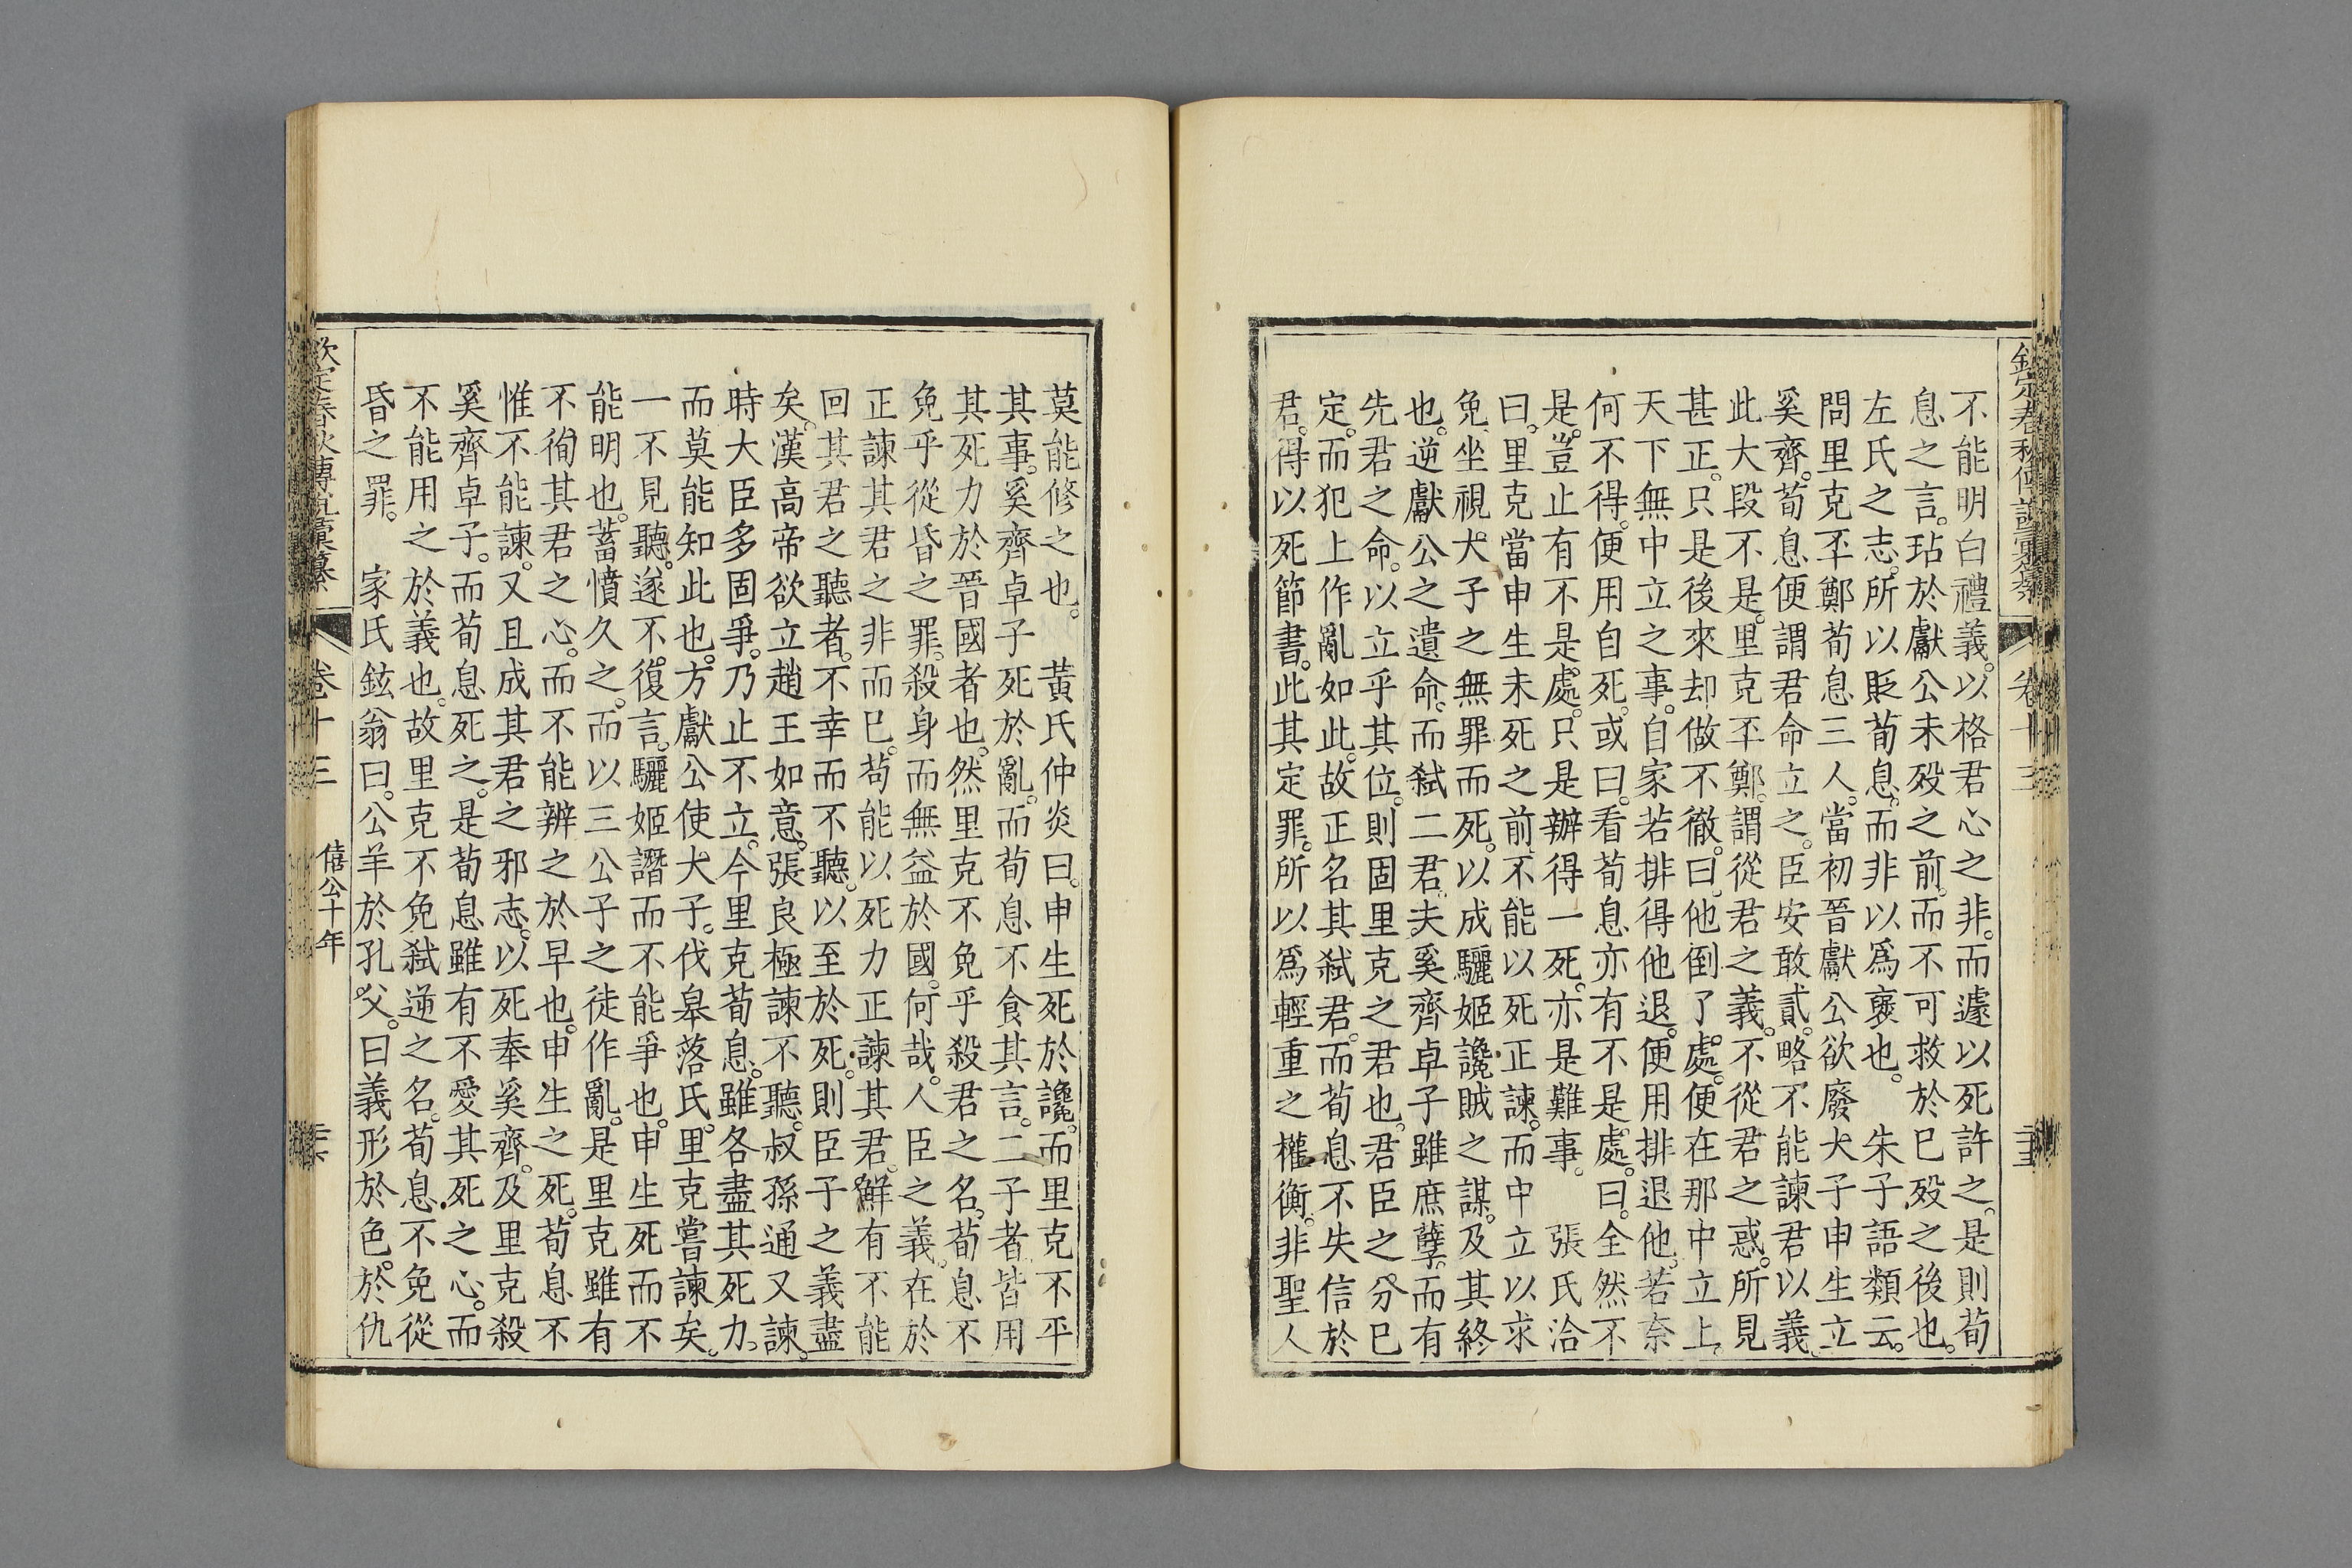 欽定春秋傳說彙纂 卷十三
不能明白禮義。以格君心之非。而遽以死許之。是則荀
息之言。玷於獻公未歿之前。而不可救於已歿之後也。
左氏之志。所以貶荀息。而非以爲褒也。 朱子語類云。
問里克㔻鄭荀息三人。當初晉獻公欲廢太子申生立
奚齊。荀息便謂君命立之。臣安敢貳。略不能諫君以義。
此大段不是。里克㔻鄭。謂從君之義。不從君之惑。所見
甚正。只是後來却做不徹。曰。他倒了處。便在那中立上。
天下無中立之事。自家若排得他退。便用排退他。若奈
何不得。便用自死。或曰。看荀息亦有不是處。曰。全然不
是。豈止有不是處。只是辦得一死。亦是難事。 張氏洽
曰。里克當申生未死之前。不能以死正諫。而中立以求
免。坐視太子之無罪而死。以成驪姬讒賊之謀。及其終
也。逆獻公之遺命。而弑二君。夫奚齊卓子雖庶孽。而有
先君之命。以立乎其位。則固里克之君也。君臣之分已
定。而犯上作亂如此。故正名其弑君。而荀息不失信於
君。得以死節書。此其定罪。所以爲輕重之權衡。非聖人
莫能修之也。 黃氏仲炎曰。申生死於讒。而里克不平
其事。奚齊卓子死於亂。而荀息不食其言。二子者皆用
其死力於晉國者也。然里克不免乎殺君之名。荀息不
免乎從昏之罪。殺身而無益於國。何哉。人臣之義。在於
正諫其君之非而已。苟能以死力正諫其君。鮮有不能
回其君之聽者。不幸而不聽。以至於死。則臣子之義盡
矣。漢高帝欲立趙王如意。張良極諫不聽。叔孫通又諫。
時大臣多固爭。乃止不立。今里克荀息。雖各盡其死力。
而莫能知此也。方獻公使太子。伐皋落氏。里克嘗諫矣。
一不見聽。遂不復言。驪姬譖而不能爭也。申生死而不
能明也。蓄憤久之。而以三公子之徒作亂。是里克雖有
不徇其君之心。而不能辨之於早也。申生之死。荀息不
惟不能諫。又且成其君之邪志。以死奉奚齊。及里克殺
奚齊卓子。而荀息死之。是荀息雖有不愛其死之心。而
不能用之於義也。故里克不免弑逆之名。荀息不免從
昏之罪。 家氏鉉翁曰。公羊於孔父。曰義形於色。於仇
欽定春秋傳說彙纂 卷十三 僖公十年